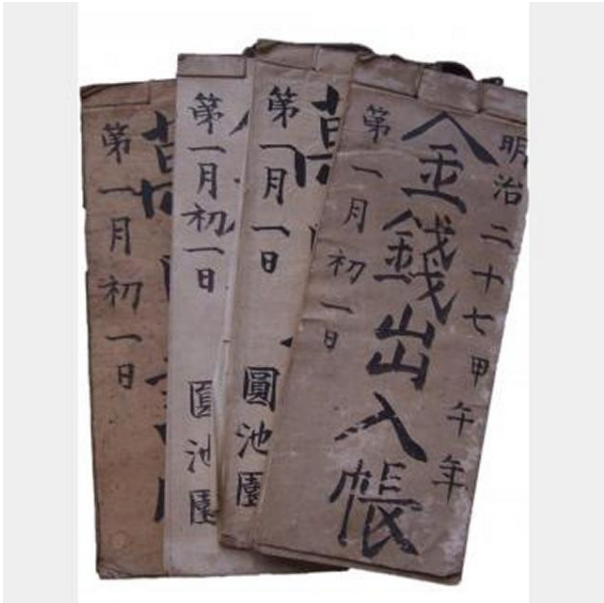 明治二十七甲午年
金錢出入帳
第一月初一日
第一月一日
圓池園
第一月初一日
圓池園
第一月初一日